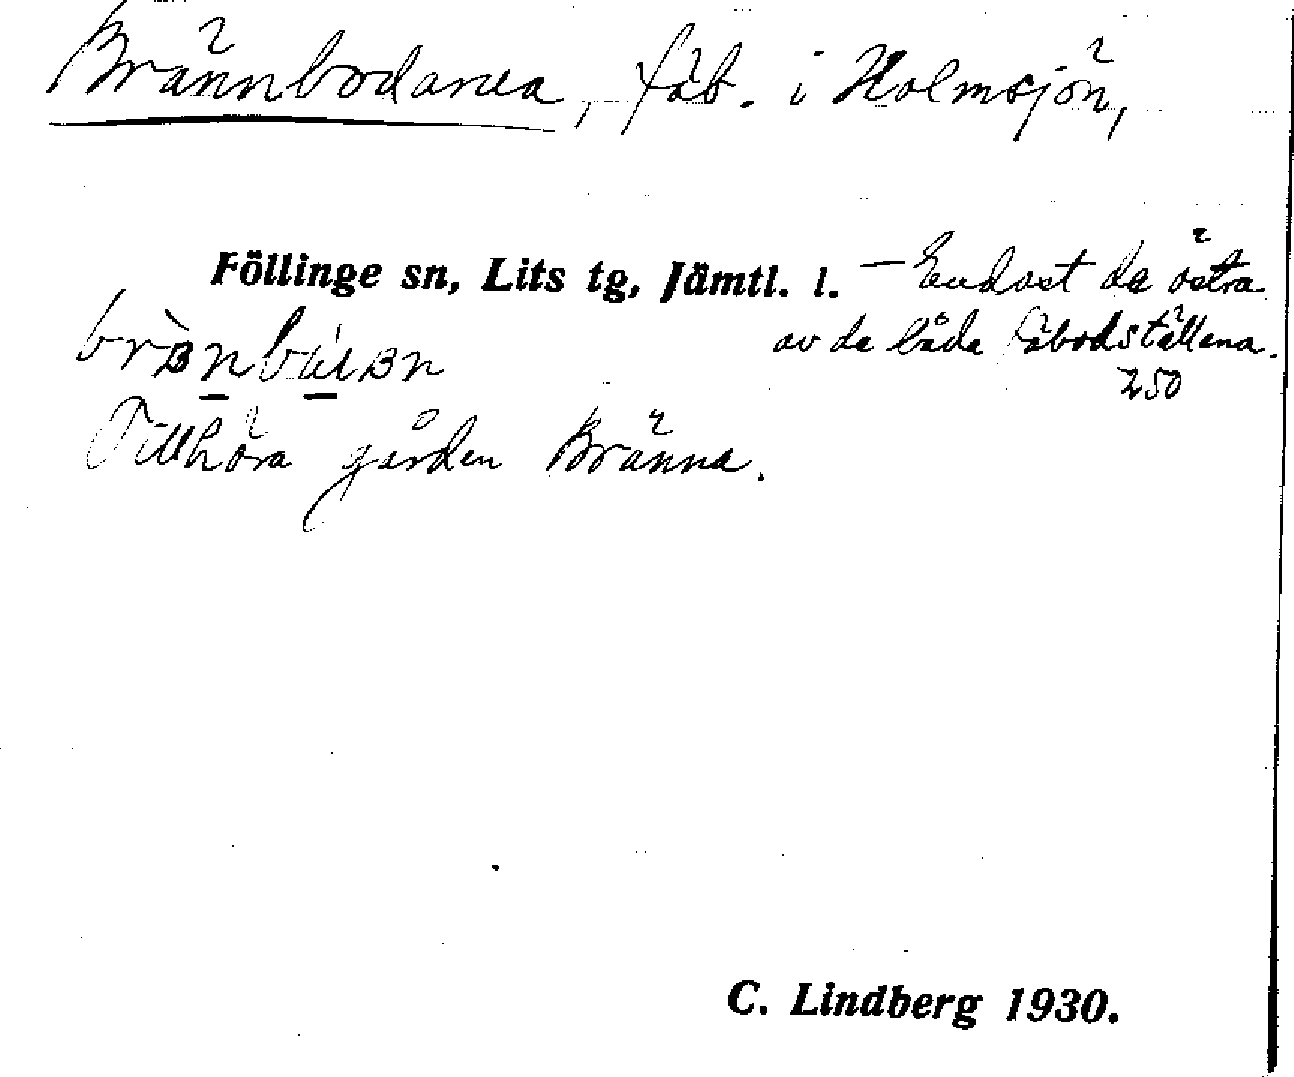 Brännbodarna, fäb. i Holmsjön,
Föllinge sn, Lits tg, Jämtl. l. – Endast de östra
av de båda fäbodställena.
250
Tillhöra gården Bränna.
C. Lindberg 1930.